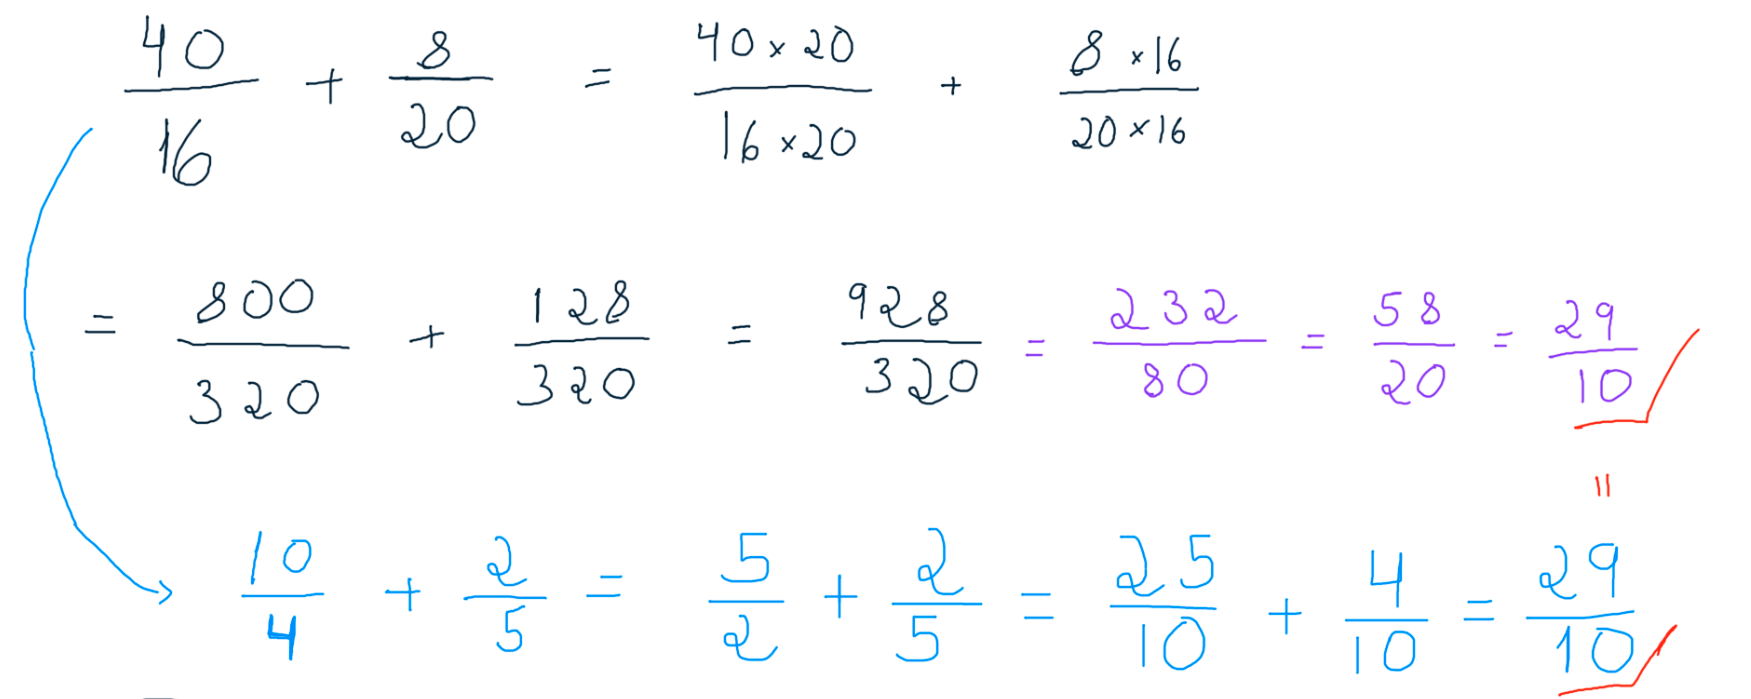 40/16 + 8/20 = 40 × 20/16 × 20 + 8 × 16/20 × 16
= 800/320 + 128/320 = 928/320 = 232/80 = 58/20 = 29/10
=
10/4 + 2/5 = 5/2 + 2/5 = 25/10 + 4/10 = 29/10